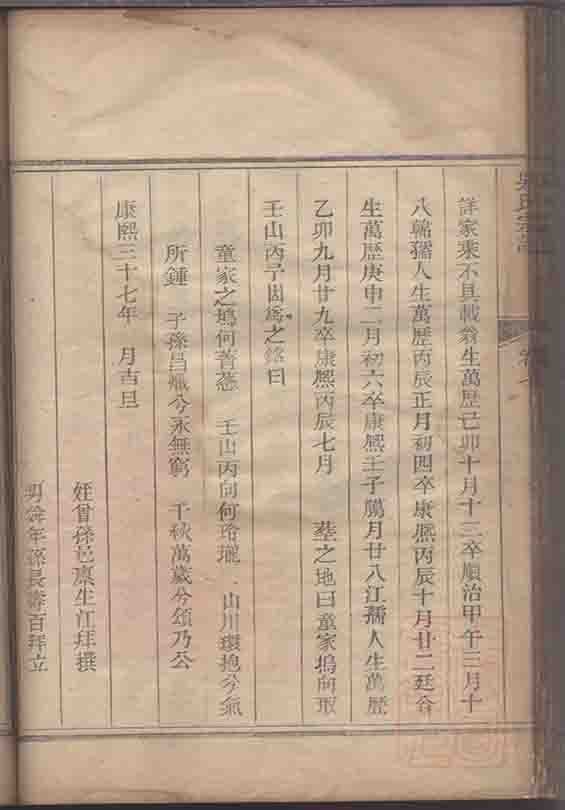 吳氏宗譜
詳家乘不具載翁生萬歷己卯十月十三卒順治甲午三月十
八翰孺人生萬歷丙辰正月初四卒康熙丙辰十月廿二廷谷
生萬歷庚申二月初六卒康熙壬子臘月廿八江孺人生萬歷
乙卯九月廿九卒康熙丙辰七月　塟之地曰童家塢向取
壬山丙子因為之銘曰
童家之塢何菁葱　壬山丙向何玲瓏　山川環抱兮氣
所鍾　子孫昌熾兮永無窮　千秋萬歲兮頌乃公
康熙三十七年　月吉旦
姪曾孫邑廩生江拜撰
男　年孫長壽百拜立